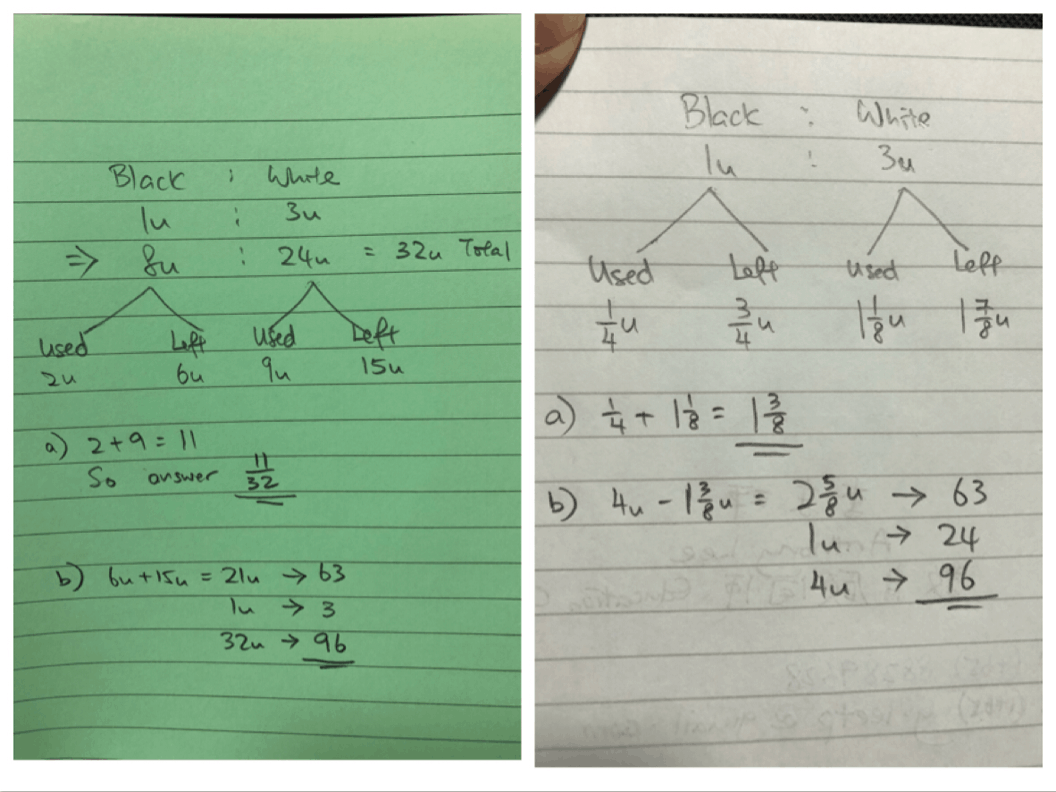 Black : White
1u : 3u
⇒ 8u : 24u = 32u Total
Used Left Used Left
2u 6u 9u 15u
a) 2 + 9 = 11
So answer 11/32
b) 6u + 15u = 21u → 63
1u → 3
32u → 96
Black : White
1u : 3u
Used Left Used Left
1/4u 3/4u 1 1/8u 1 7/8u
a) 1/4 + 1 1/8 = 1 3/8
b) 4u - 1 3/8u = 2 5/8u → 63
1u → 24
4u → 96